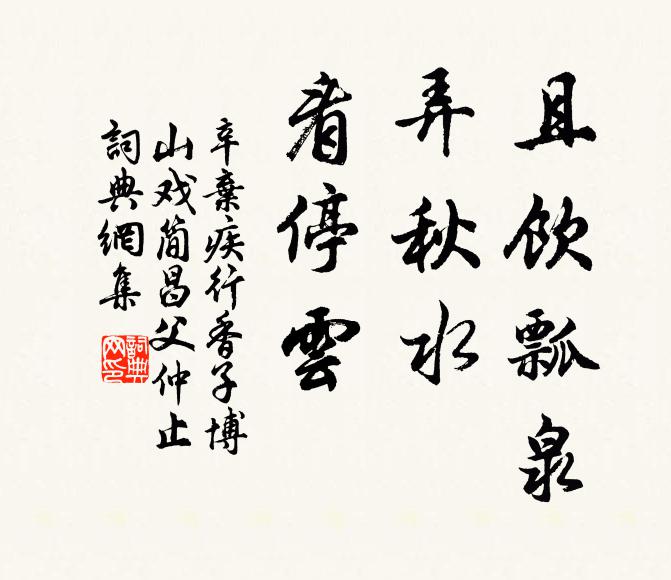 且饮瓢泉
弄秋水
看停雲
辛棄疾行香子博
山戏简昌父仲止
詞典網集
詞典
网印